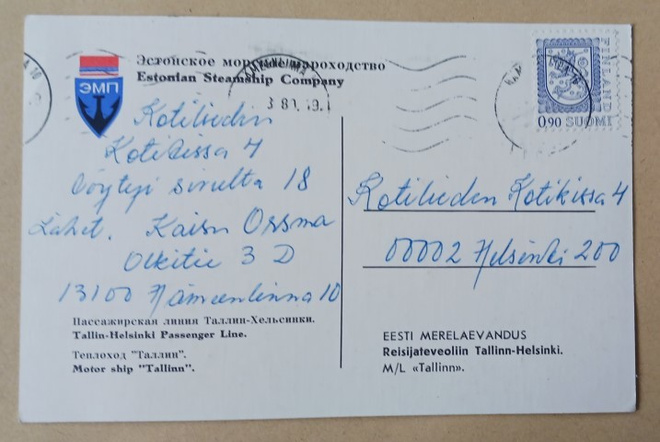 Эстонское морское пароходство
Estonian Steamship Company
ЭМП
Kotilieden
Kotikissa 4
löytyi sivulta 18
Lähet. Kaisu Ossma
Olkitie 3 D
13100 Hämeenlinna 10
Пассажирская линия Таллин-Хельсинки.
Tallin-Helsinki Passenger Line.
Теплоход "Таллин".
Motor ship "Tallinn".
FINLAND
0,90 SUOMI
Kotilieden Kotikissa 4
00002 Helsinki 200
EESTI MERELAEVANDUS
Reisijateveoliin Tallinn-Helsinki.
M/L «Tallinn».